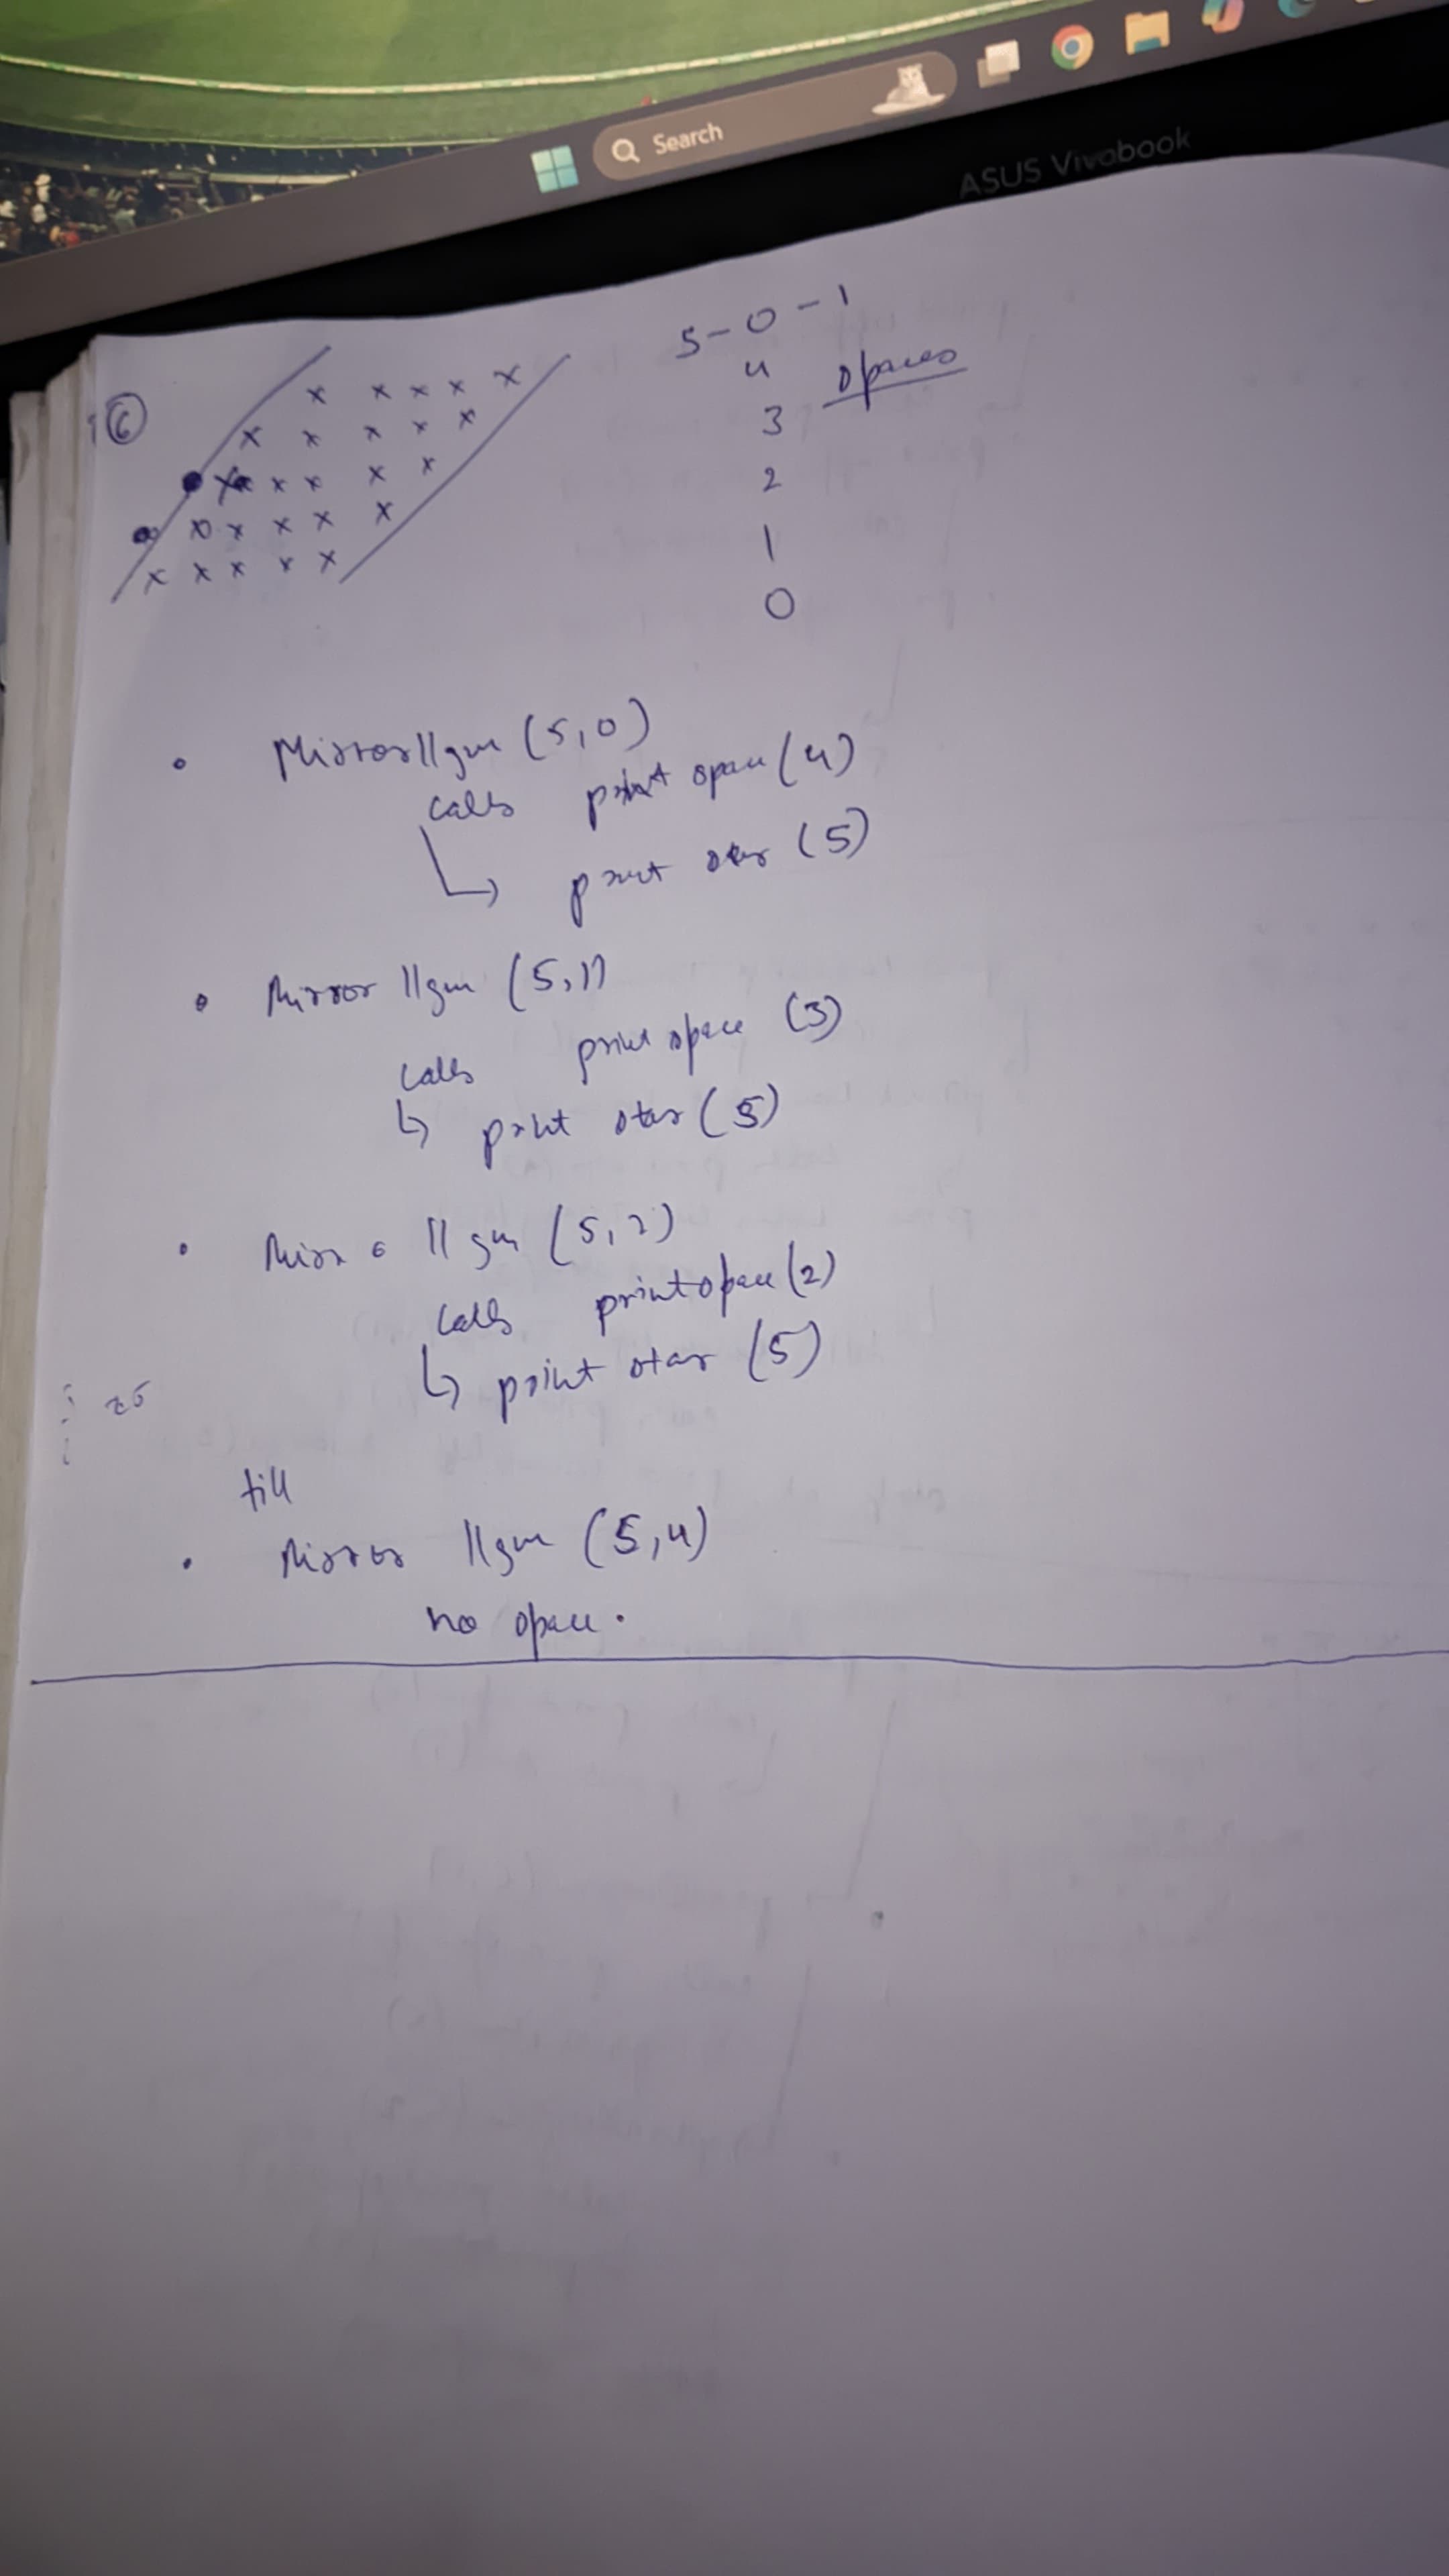 Search
ASUS Vivobook
6
x x x x x
x x x x x
x x x x
x x x x
x x x x x
5-0-1
4 spaces
3
2
1
0
• Mirror||gm (5,0)
calls print space (4)
↳ print star (5)
• Mirror ||gm (5,1)
calls print space (3)
↳ print star (5)
• ||gm (5,2)
calls print space (2)
↳ print star (5)
till
• Mirror ||gm (5,4)
no space.